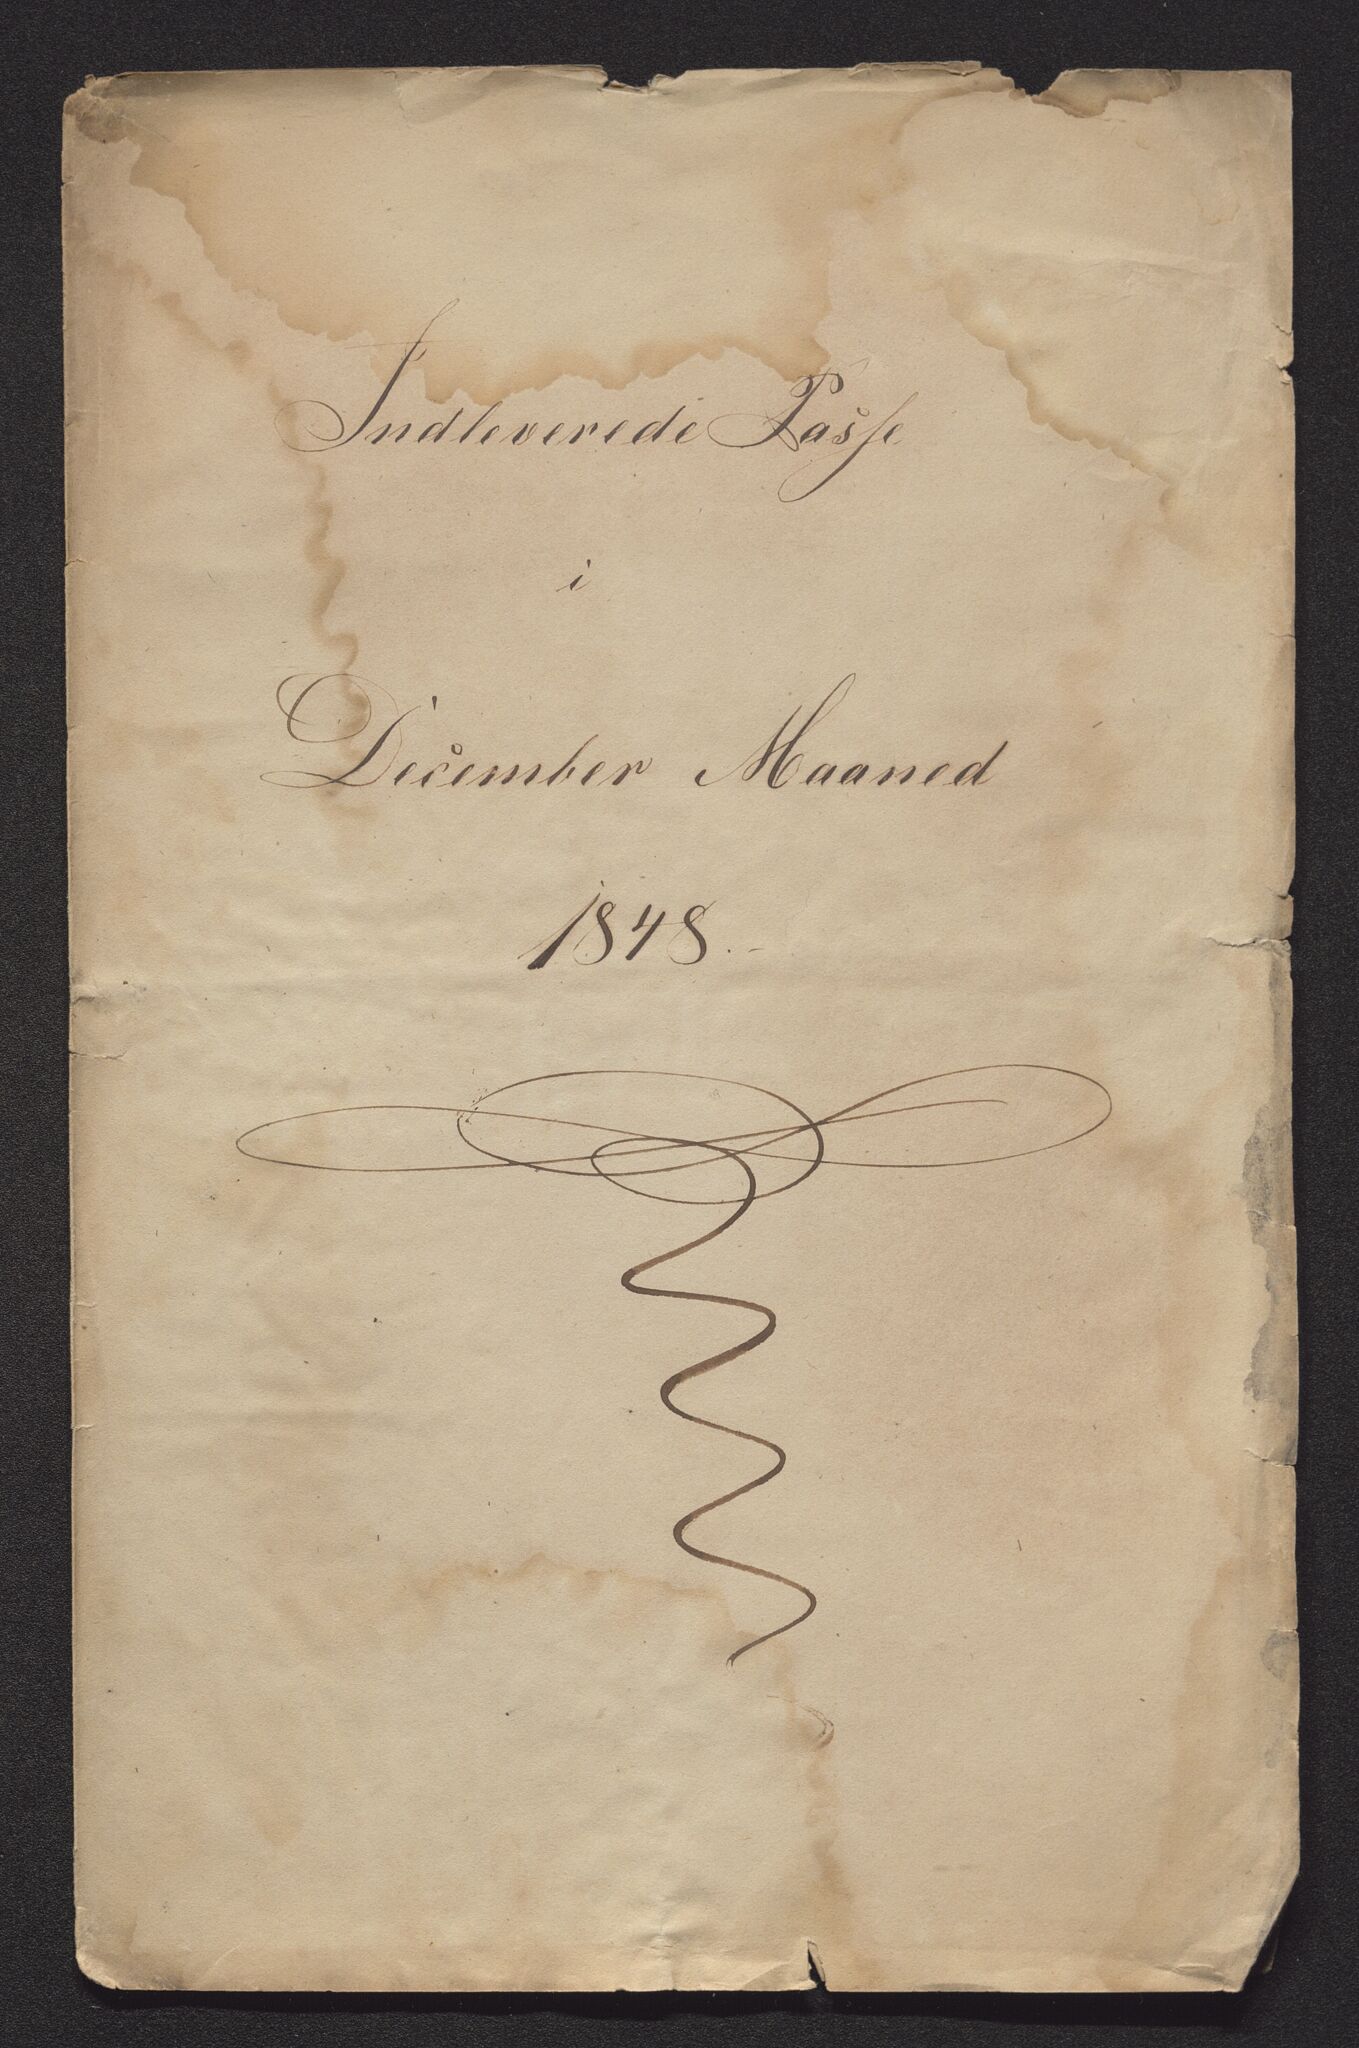 Indleverede Passe
i
December Maaned
1848.